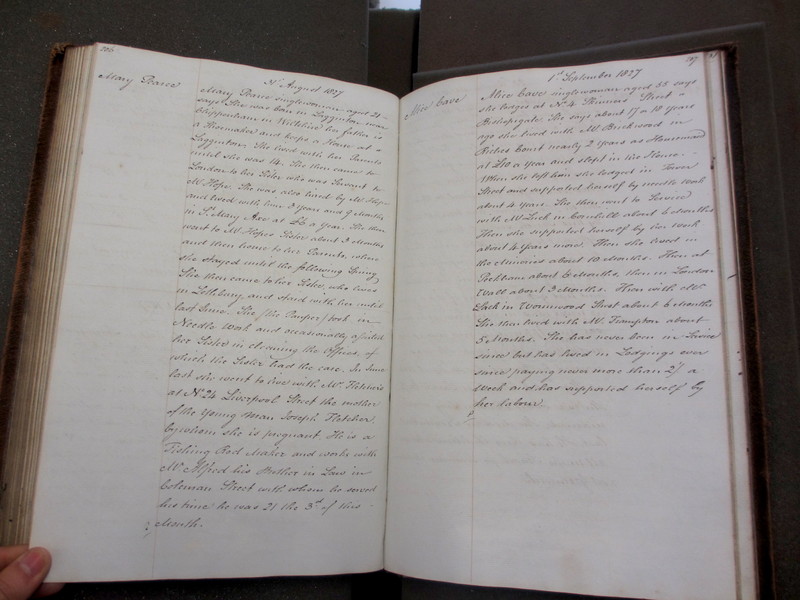 206
31st August 1827
Mary Pearce
Mary Pearce singlewoman aged 21
says she was born in Luggington near
Chippenham in Wiltshire her father is
a Shoemaker and keeps a House at
Luggington. She lived with her Parents
until she was 14. She then came to
London to her Sister who was Servant to
Mr Hope. She was also hired by Mr Hope
and lived with him 3 Years and 9 Months
in St. Mary Axe at £6 a Year. She then
went to Mr Hopes Sister about 3 Months
and then home to her Parents, where
she stayed until the following Spring
She then came to her Sister, who lives
in Lothbury, and staid with her until
last June. She (the Pauper) took in
Needle Work and occasionally assisted
her Sister in cleaning the Offices, of
which the Sister had the care. In June
last she went to live with Mrs Fletcher
at No. 24 Liverpool Street the mother
of the Young Man Joseph Fletcher
by whom she is pregnant He is a
Fishing Rod Maker and works with
Mr Alfred his Brother in Law in
Coleman Street with whom he served
his time he was 21 the 3d of this
Month.
207
1st September 1827
Alice Cave
Alice Cave singlewoman aged 55 says
she lodges at No. 4 Skinners Street
Bishopsgate. She says about 17 or 18 Years
ago she lived with Mr Brickwood in
Riches Court nearly 2 Years as Housemaid
at £10 a Year and slept in the House.
When she left him she lodged in Tower
Street and supported herself by needle Work
about 4 Years. She then went to Service
with Mr Luck in Cornhill about 6 Months
Then she supported herself by her Work
about 4 Years more. Then she lived in
the Minories about 10 Months. Then at
Peckham about 6 Months, then in London
Wall about 3 Months. Then with Mr
Sack in Wormwood Street about 6 Months
She then lived with Mr. Frampton about
5 Months. She has never been in Service
since but has lived in Lodgings ever
since paying never more than 2/ a
Week and has supported herself by
her labour.